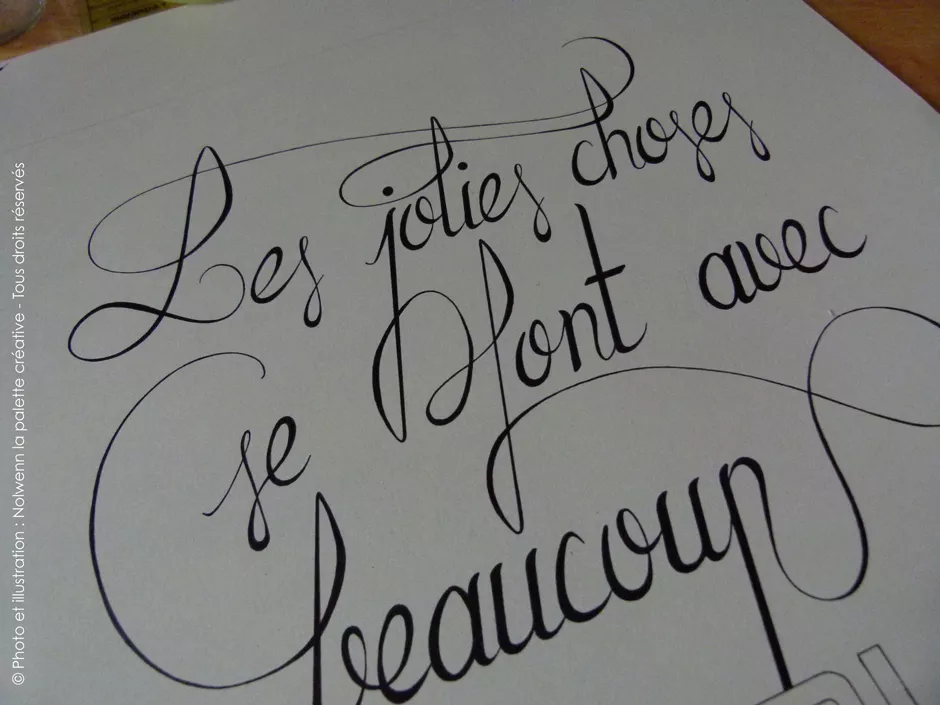 Les jolies choses
se font avec
beaucoup
© Photo et illustration : Nolwenn la palette créative - Tous droits réservés